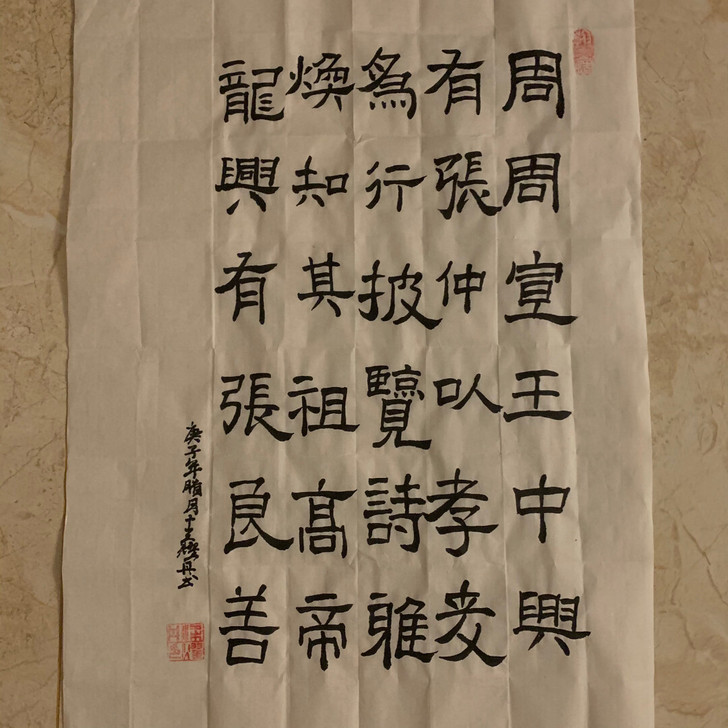 周周宣王中興
有張仲以孝友
為行披覽詩雅
煥知其祖高帝
龍興有張良善
庚子年腊月十